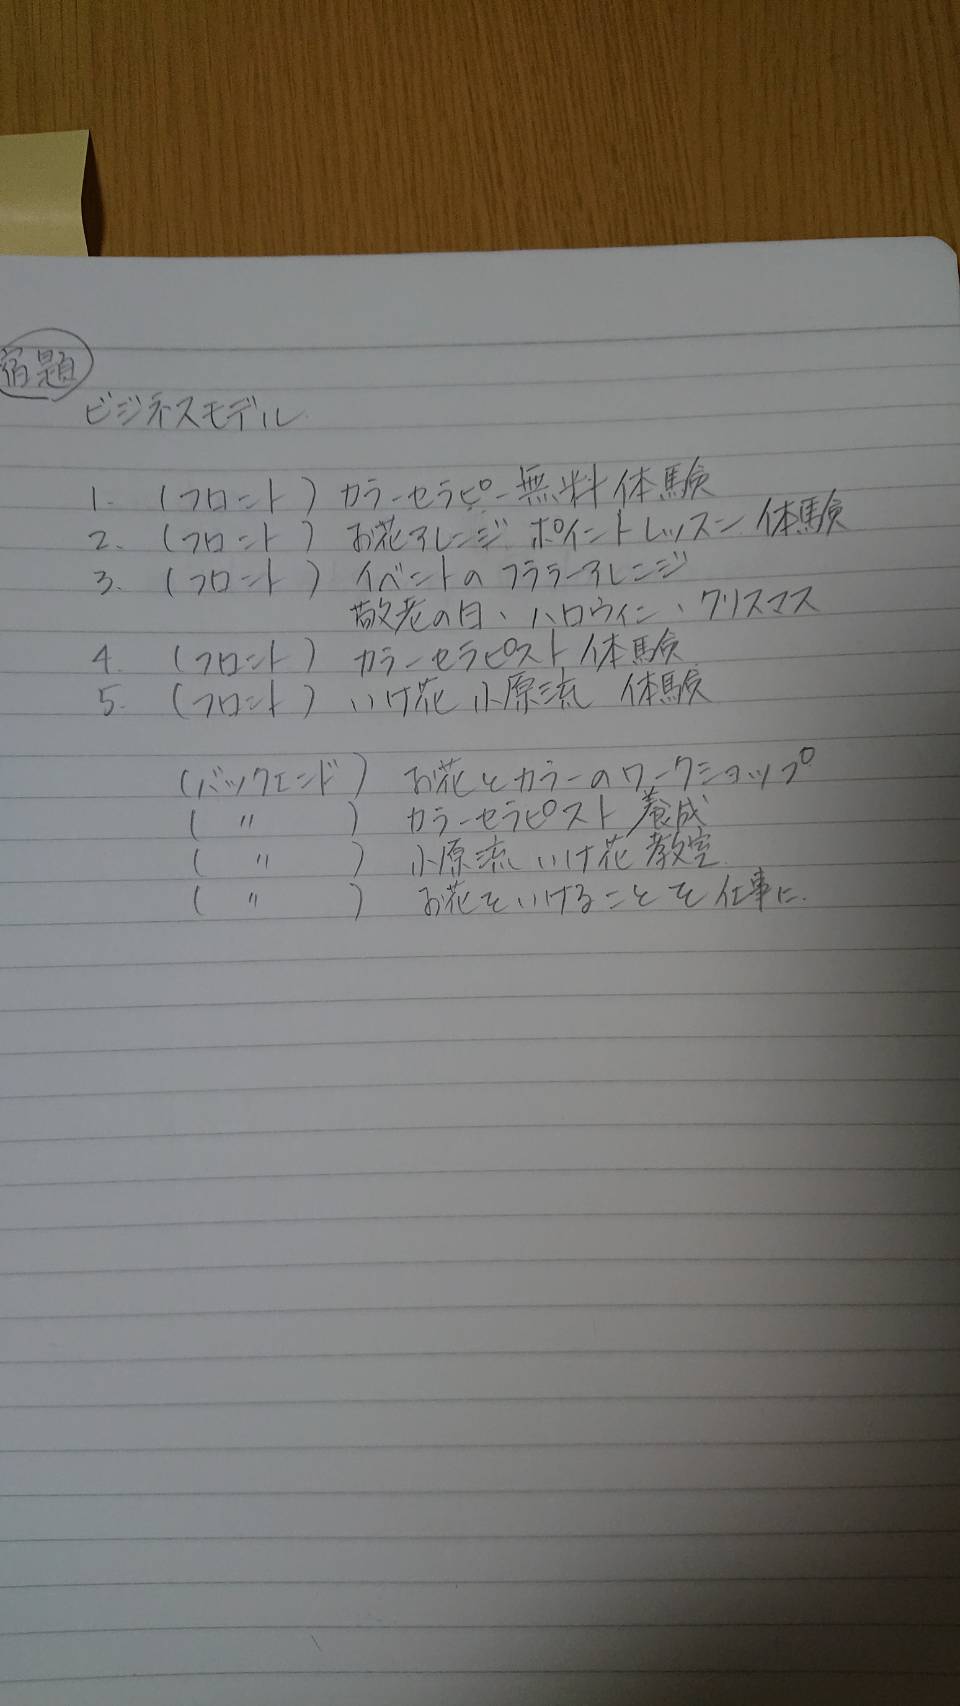 宿題
ビジネスモデル
1. (フロント) カラーセラピー無料体験
2. (フロント) お花アレンジ ポイントレッスン 体験
3. (フロント) イベントのフラワーアレンジ
敬老の日、ハロウィン、クリスマス
4. (フロント) カラーセラピスト体験
5. (フロント) いけ花 小原流 体験
(バックエンド) お花とカラーのワークショップ
( 〃 ) カラーセラピスト養成
( 〃 ) 小原流いけ花教室
( 〃 ) お花をいけることを仕事に.